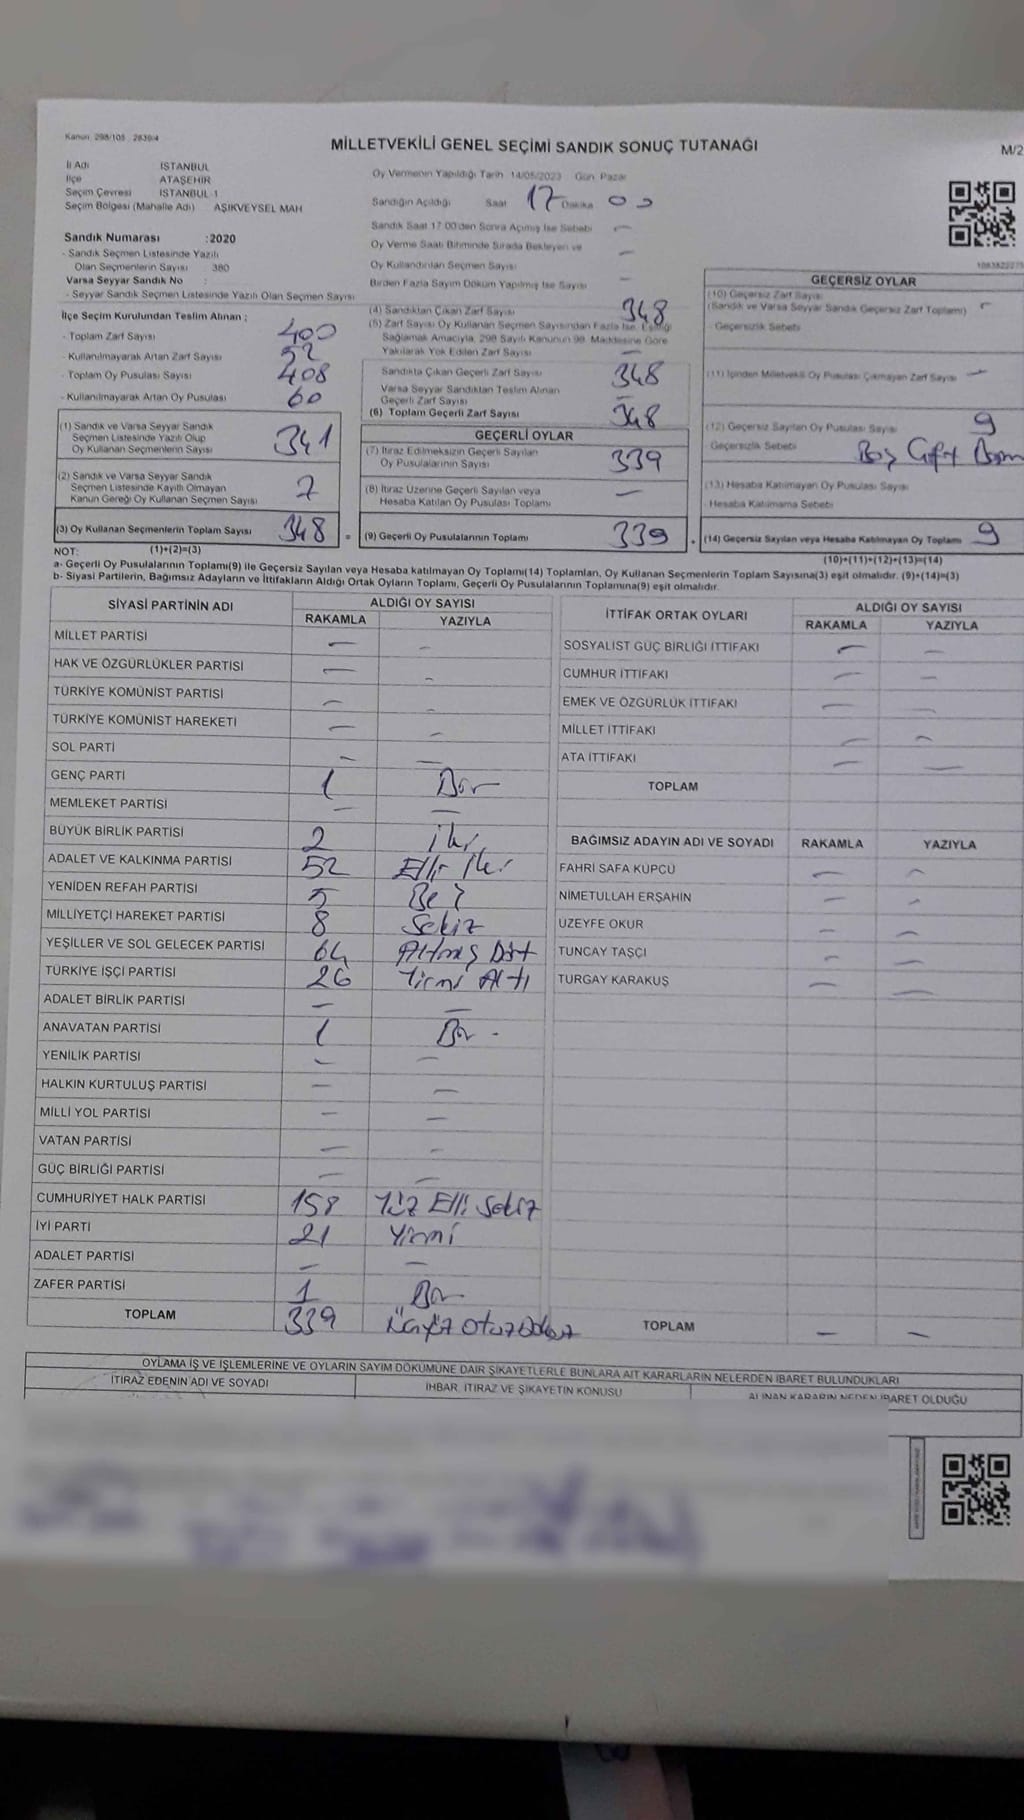 Kanun 298/105 2839/4
MİLLETVEKİLİ GENEL SEÇİMİ SANDIK SONUÇ TUTANAĞI
M/2
İl Adı İSTANBUL
İlçe ATAŞEHİR
Seçim Çevresi İSTANBUL 1
Seçim Bölgesi (Mahalle Adı) AŞIKVEYSEL MAH
Sandık Numarası :2020
- Sandık Seçmen Listesinde Yazılı
Olan Seçmenlerin Sayısı : 380
Varsa Seyyar Sandık No :
- Seyyar Sandık Seçmen Listesinde Yazılı Olan Seçmen Sayısı
Oy Vermenin Yapıldığı Tarih 14/05/2023 Gün Pazar
Sandığın Açıldığı Saat 17 Dakika 00
Sandık Saat 17 00'den Sonra Açımış İse Sebebi —
Oy Verme Saati Bitiminde Sırada Bekleyen ve
Oy Kullandırılan Seçmen Sayısı —
Birden Fazla Sayım Döküm Yapılmış İse Sayısı —
İlçe Seçim Kurulundan Teslim Alınan ;
- Toplam Zarf Sayısı 400
- Kullanılmayarak Artan Zarf Sayısı 52
- Toplam Oy Pusulası Sayısı 408
- Kullanılmayarak Artan Oy Pusulası 60
(1) Sandık ve Varsa Seyyar Sandık
Seçmen Listesinde Yazılı Olup
Oy Kullanan Seçmenlerin Sayısı 341
(2) Sandık ve Varsa Seyyar Sandık
Seçmen Listesinde Kayıtlı Olmayan
Kanun Gereği Oy Kullanan Seçmen Sayısı 7
(3) Oy Kullanan Seçmenlerin Toplam Sayısı 348 =
(4) Sandıktan Çıkan Zarf Sayısı 348
(5) Zarf Sayısı Oy Kullanan Seçmen Sayısından Fazla İse, Eşitliği
Sağlamak Amacıyla, 298 Sayılı Kanunun 98. Maddesine Göre
Yakılarak Yok Edilen Zarf Sayısı —
Sandıkta Çıkan Geçerli Zarf Sayısı 348
Varsa Seyyar Sandıktan Teslim Alınan
Geçerli Zarf Sayısı —
(6) Toplam Geçerli Zarf Sayısı 348
GEÇERLİ OYLAR
(7) İtiraz Edilmeksizin Geçerli Sayılan
Oy Pusulalarının Sayısı 339
(8) İtiraz Üzerine Geçerli Sayılan veya
Hesaba Katılan Oy Pusulası Toplamı —
(9) Geçerli Oy Pusulalarının Toplamı 339 +
GEÇERSİZ OYLAR
(10) Geçersiz Zarf Sayısı
(Sandık ve Varsa Seyyar Sandık Geçersiz Zarf Toplamı) —
- Geçersizlik Sebebi
(11) İçinden Milletvekili Oy Pusulası Çıkmayan Zarf Sayısı —
(12) Geçersiz Sayılan Oy Pusulası Sayısı 9
Geçersizlik Sebebi Boş Çift
(13) Hesaba Katılmayan Oy Pusulası Sayısı
- Hesaba Katılmama Sebebi
(14) Geçersiz Sayılan veya Hesaba Katılmayan Oy Toplamı 9
NOT: (1)+(2)=(3) (10)+(11)+(12)+(13)=(14)
a- Geçerli Oy Pusulalarının Toplamı(9) ile Geçersiz Sayılan veya Hesaba katılmayan Oy Toplamı(14) Toplamları, Oy Kullanan Seçmenlerin Toplam Sayısına(3) eşit olmalıdır. (9)+(14)=(3)
b- Siyasi Partilerin, Bağımsız Adayların ve İttifakların Aldığı Ortak Oyların Toplamı, Geçerli Oy Pusulalarının Toplamına(9) eşit olmalıdır.
SİYASİ PARTİNİN ADI ALDIĞI OY SAYISI
RAKAMLA YAZIYLA
MİLLET PARTİSİ — —
HAK VE ÖZGÜRLÜKLER PARTİSİ — —
TÜRKİYE KOMÜNİST PARTİSİ — —
TÜRKİYE KOMÜNİST HAREKETİ — —
SOL PARTİ — —
GENÇ PARTİ 1 Bir
MEMLEKET PARTİSİ — —
BÜYÜK BİRLİK PARTİSİ 2 iki
ADALET VE KALKINMA PARTİSİ 52 Elli iki
YENİDEN REFAH PARTİSİ 5 Beş
MİLLİYETÇİ HAREKET PARTİSİ 8 Sekiz
YEŞİLLER VE SOL GELECEK PARTİSİ 64 Altmış Dört
TÜRKİYE İŞÇİ PARTİSİ 26 Yirmi Altı
ADALET BİRLİK PARTİSİ — —
ANAVATAN PARTİSİ 1 Bir -
YENİLİK PARTİSİ — —
HALKIN KURTULUŞ PARTİSİ — —
MİLLİ YOL PARTİSİ — —
VATAN PARTİSİ — —
GÜÇ BİRLİĞİ PARTİSİ — —
CUMHURİYET HALK PARTİSİ 158 Yüz Elli Sekiz
İYİ PARTİ 21 Yirmi
ADALET PARTİSİ — —
ZAFER PARTİSİ 1 Bir
TOPLAM 339 Üçyüz Otuz Dokuz
İTTİFAK ORTAK OYLARI ALDIĞI OY SAYISI
RAKAMLA YAZIYLA
SOSYALİST GÜÇ BİRLİĞİ İTTİFAKI — —
CUMHUR İTTİFAKI — —
EMEK VE ÖZGÜRLÜK İTTİFAKI — —
MİLLET İTTİFAKI — —
ATA İTTİFAKI — —
TOPLAM
BAĞIMSIZ ADAYIN ADI VE SOYADI RAKAMLA YAZIYLA
FAHRİ SAFA KÜPCÜ — —
NİMETULLAH ERŞAHİN — —
UZEYFE OKUR — —
TUNCAY TAŞÇI — —
TURGAY KARAKUŞ — —
TOPLAM — —
OYLAMA İŞ VE İŞLEMLERİNE VE OYLARIN SAYIM DÖKÜMÜNE DAİR ŞİKAYETLERLE BUNLARA AİT KARARLARIN NELERDEN İBARET BULUNDUKLARI
İTİRAZ EDENİN ADI VE SOYADI İHBAR, İTİRAZ VE ŞİKAYETİN KONUSU ALINAN KARARIN NEDEN İBARET OLDUĞU